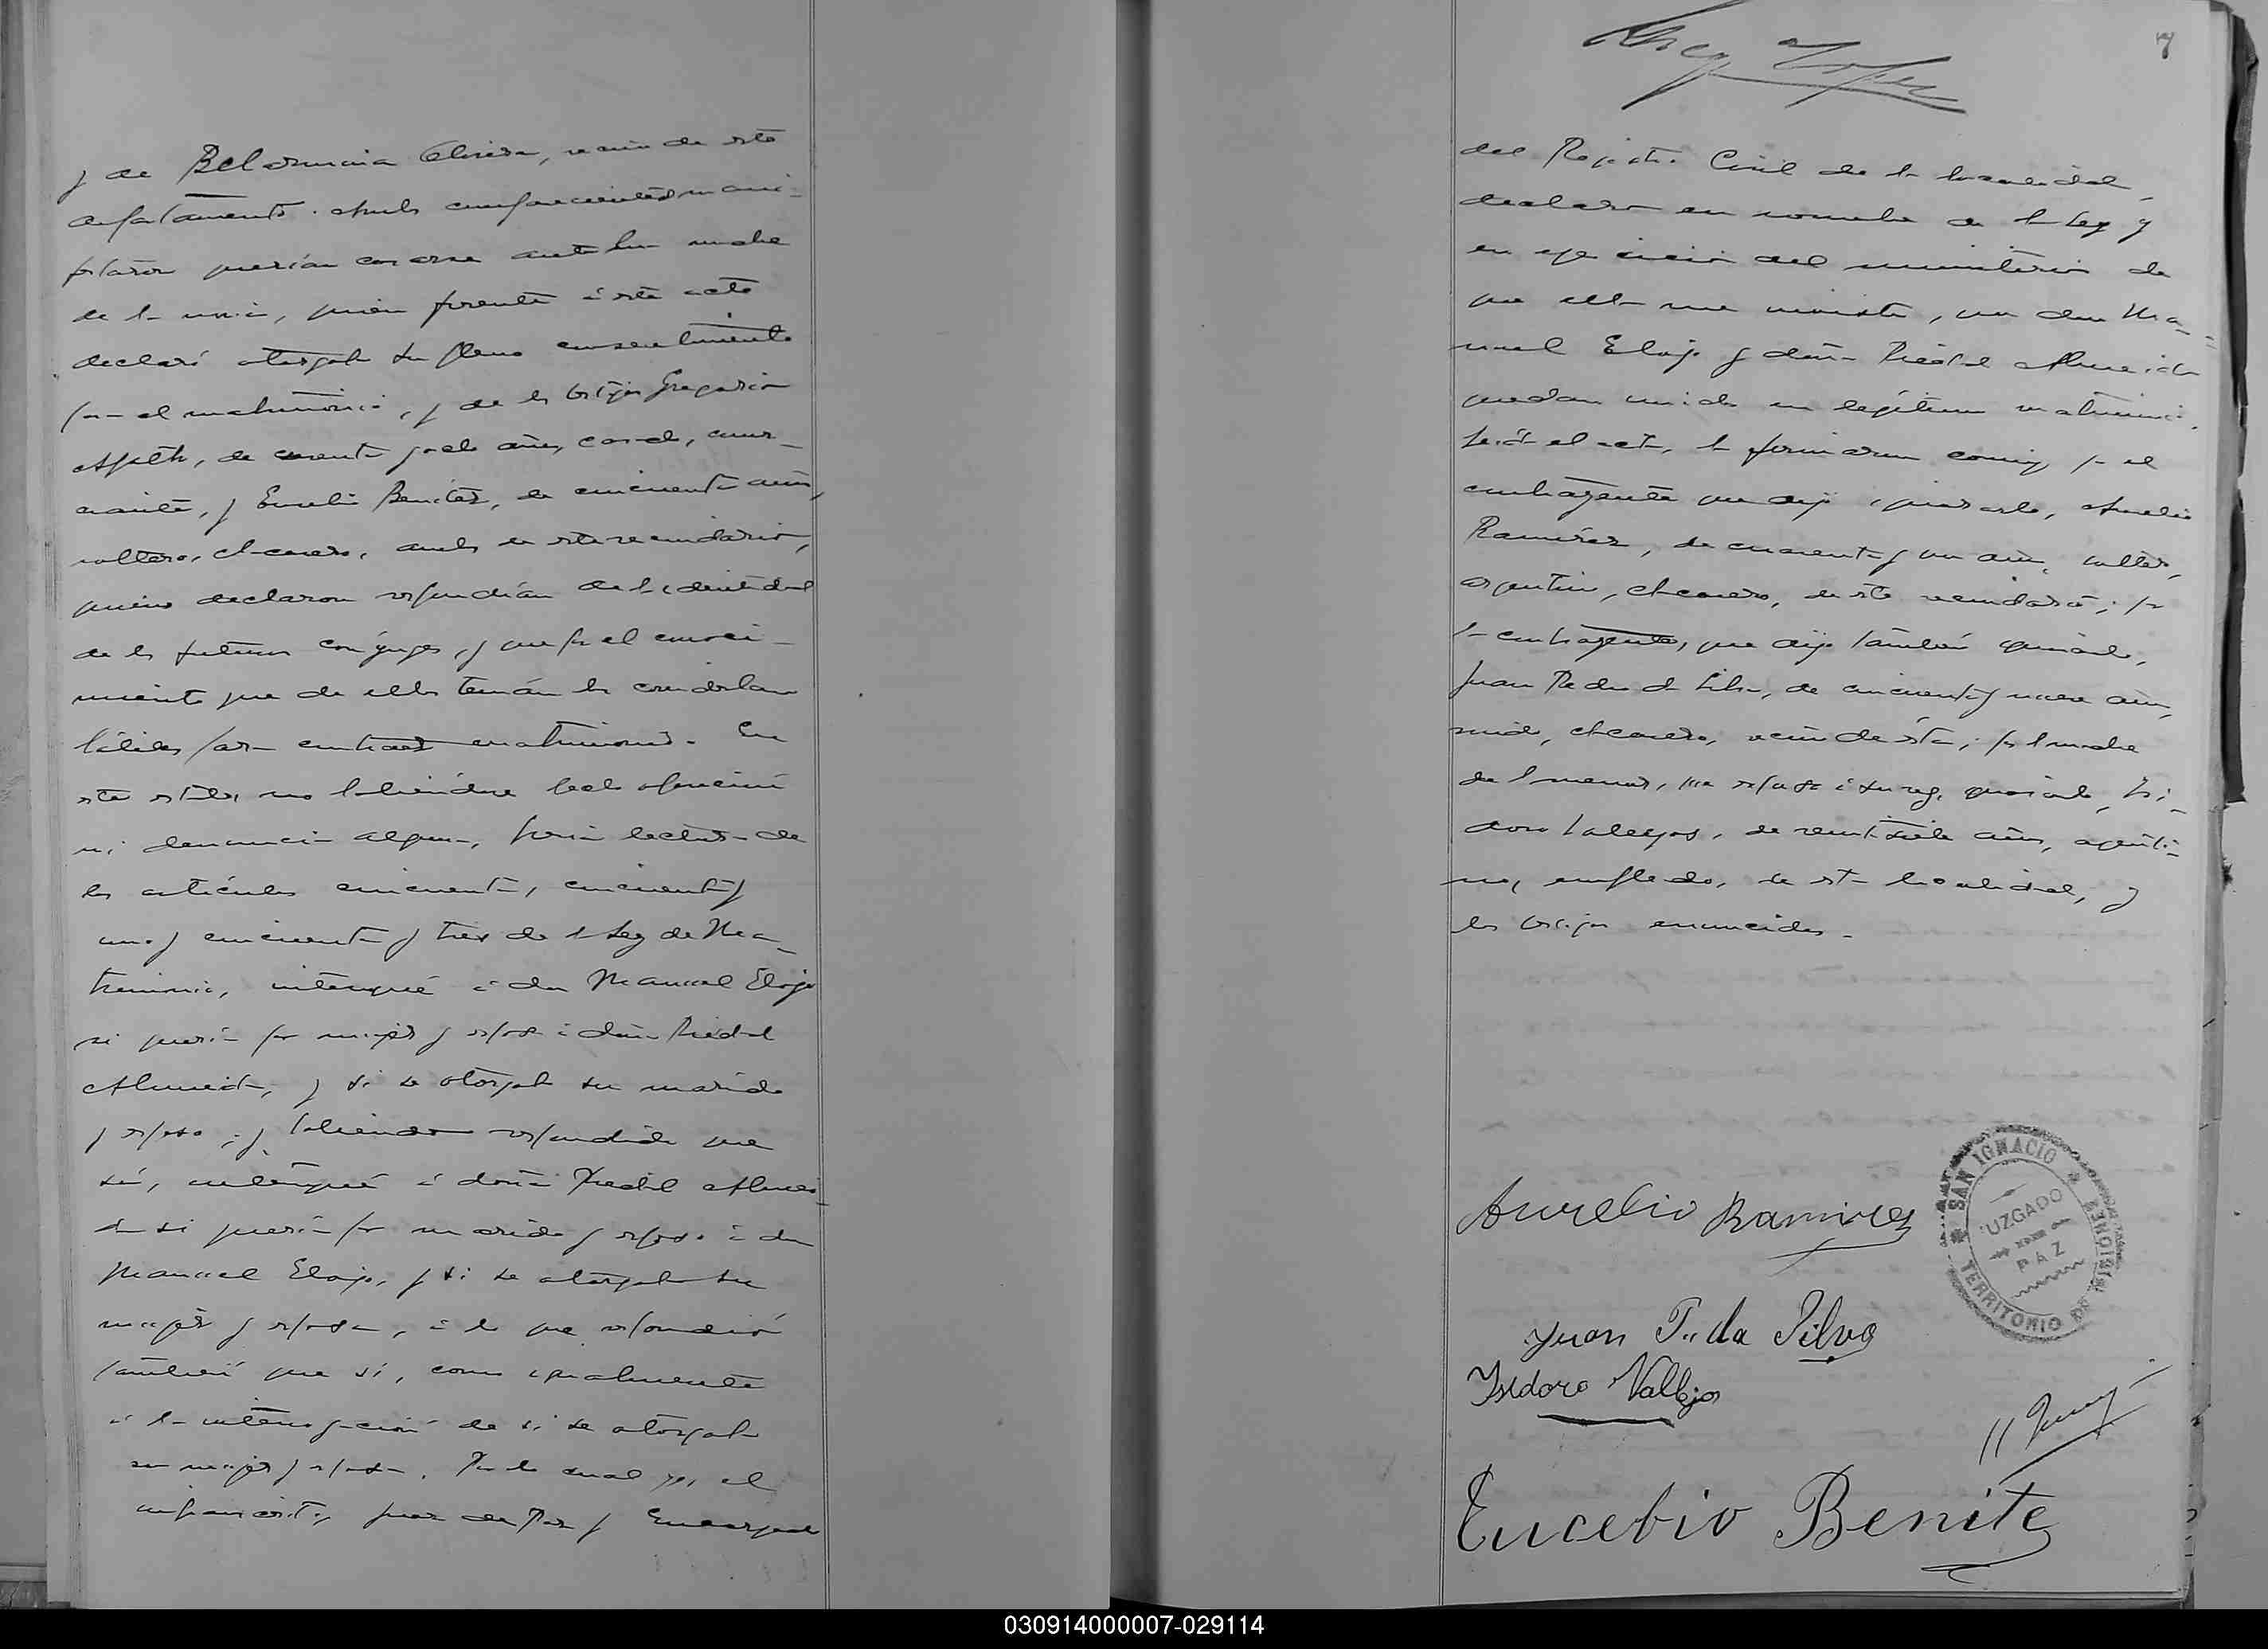 y de Belarmina Olivera, vecina de este
departamento. Ambos comparecientes mani-
festaron querían casarse ante la madre
de la novia, quien presente á este acto
declaró otorgaba su pleno consentimiento
para el matrimonio, y de los testigos Gregorio
de cuarenta y ocho años, casado, comer-
ciante, y Eusebio Benítez, de cincuenta años,
soltero, chacarero, ambos de este vecindario,
quienes declararon respondían de la identidad
de los futuros cónyuges, y que por el conoci-
miento que de ellos tenían los consideraban
hábiles para contraer matrimonio. En
este estado, no habiéndose hecho oposición
ni denuncia alguna, previa lectura de
los artículos cincuenta, cincuenta y
uno y cincuenta y tres de la Ley de Ma-
trimonio, interrogué á don Manuel Elojo
si quería por mujer y esposa á doña Piedad
Almeida, y si se otorgaba su marido
y esposo; y habiendo respondido que
sí, interrogué á doña Piedad Almei-
da si quería por marido y esposo á don
Manuel Elojo, y si se otorgaba su
mujer y esposa, á lo que respondió
también que sí, como igualmente
á la interrogación de si se otorgaba
su mujer y esposa. Por lo cual yo, el
infrascrito, Juez de Paz y Encargado
7
del Registro Civil de la localidad,
declaro en nombre de la Ley y
en ejercicio del ministerio de
que ella me inviste, que don Ma-
nuel Elojo y doña Piedad Almeida
quedan unidos en legítimo matrimonio.
Leída el acta, la firmaron conmigo, por el
contrayente que dijo ignorarlo, Aurelio
Ramírez, de cuarenta y un años, soltero,
argentino, chacarero, de este vecindario; por
la contrayente, que dijo también ignorarlo,
Juan Pedro da Silva, de cincuenta y nueve años,
viudo, chacarero, vecino de ésta; por la madre
de la menor, que expuso á su vez, ignorarlo, Isi-
doro Vallejos, de veintisiete años, argenti-
no, empleado, de esta localidad, y
los testigos enunciados.
Aurelio Ramires
SAN IGNACIO
JUZGADO
DE
PAZ
TERRITORIO DE MISIONES
Juan P. da Silva
Isidoro Vallejos
Eucebio Benite
030914000007-029114